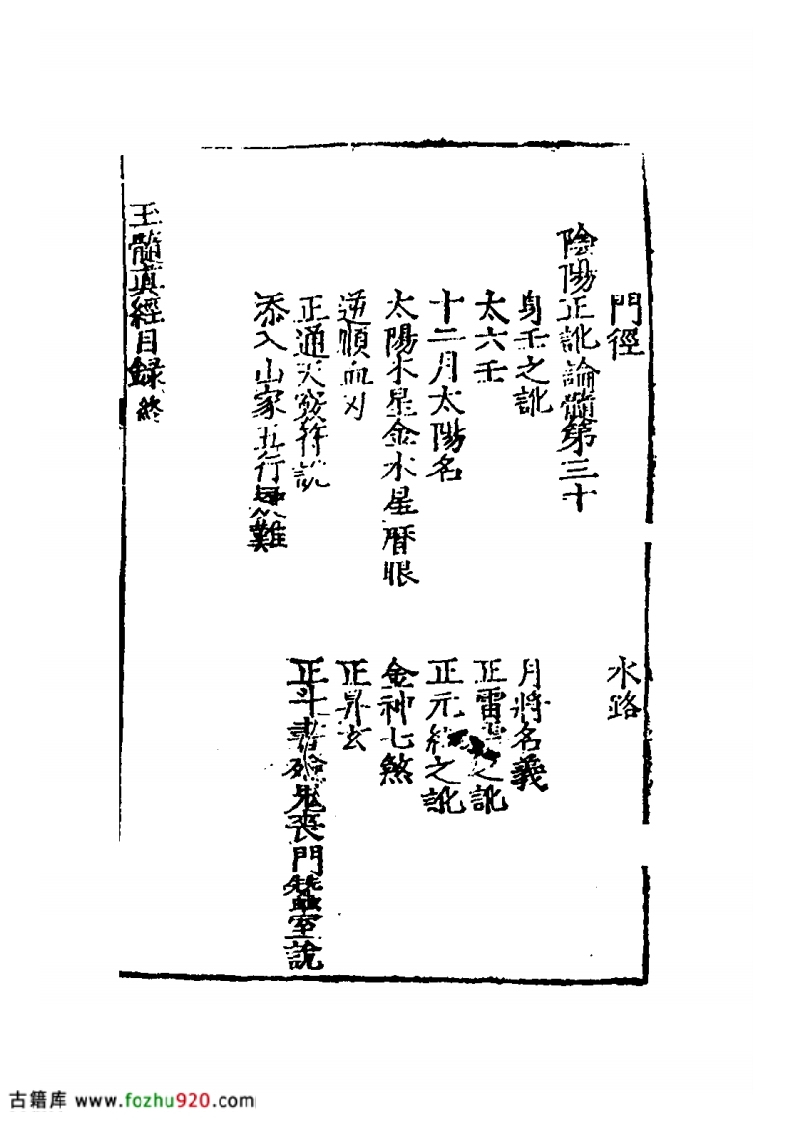 門徑 水路
陰陽正訛論髓第三十
身壬之訛 月將名義
太六壬 正雷之訛
十二月太陽名 正元經之訛
太陽水星金水星曆眼 金神七煞
逆順血刃 正昇玄
正通天竅符說 正斗書殮鬼喪門蠶室說
添入山家五行難
玉髓真經目録終
古籍库 www.fozhu920.com